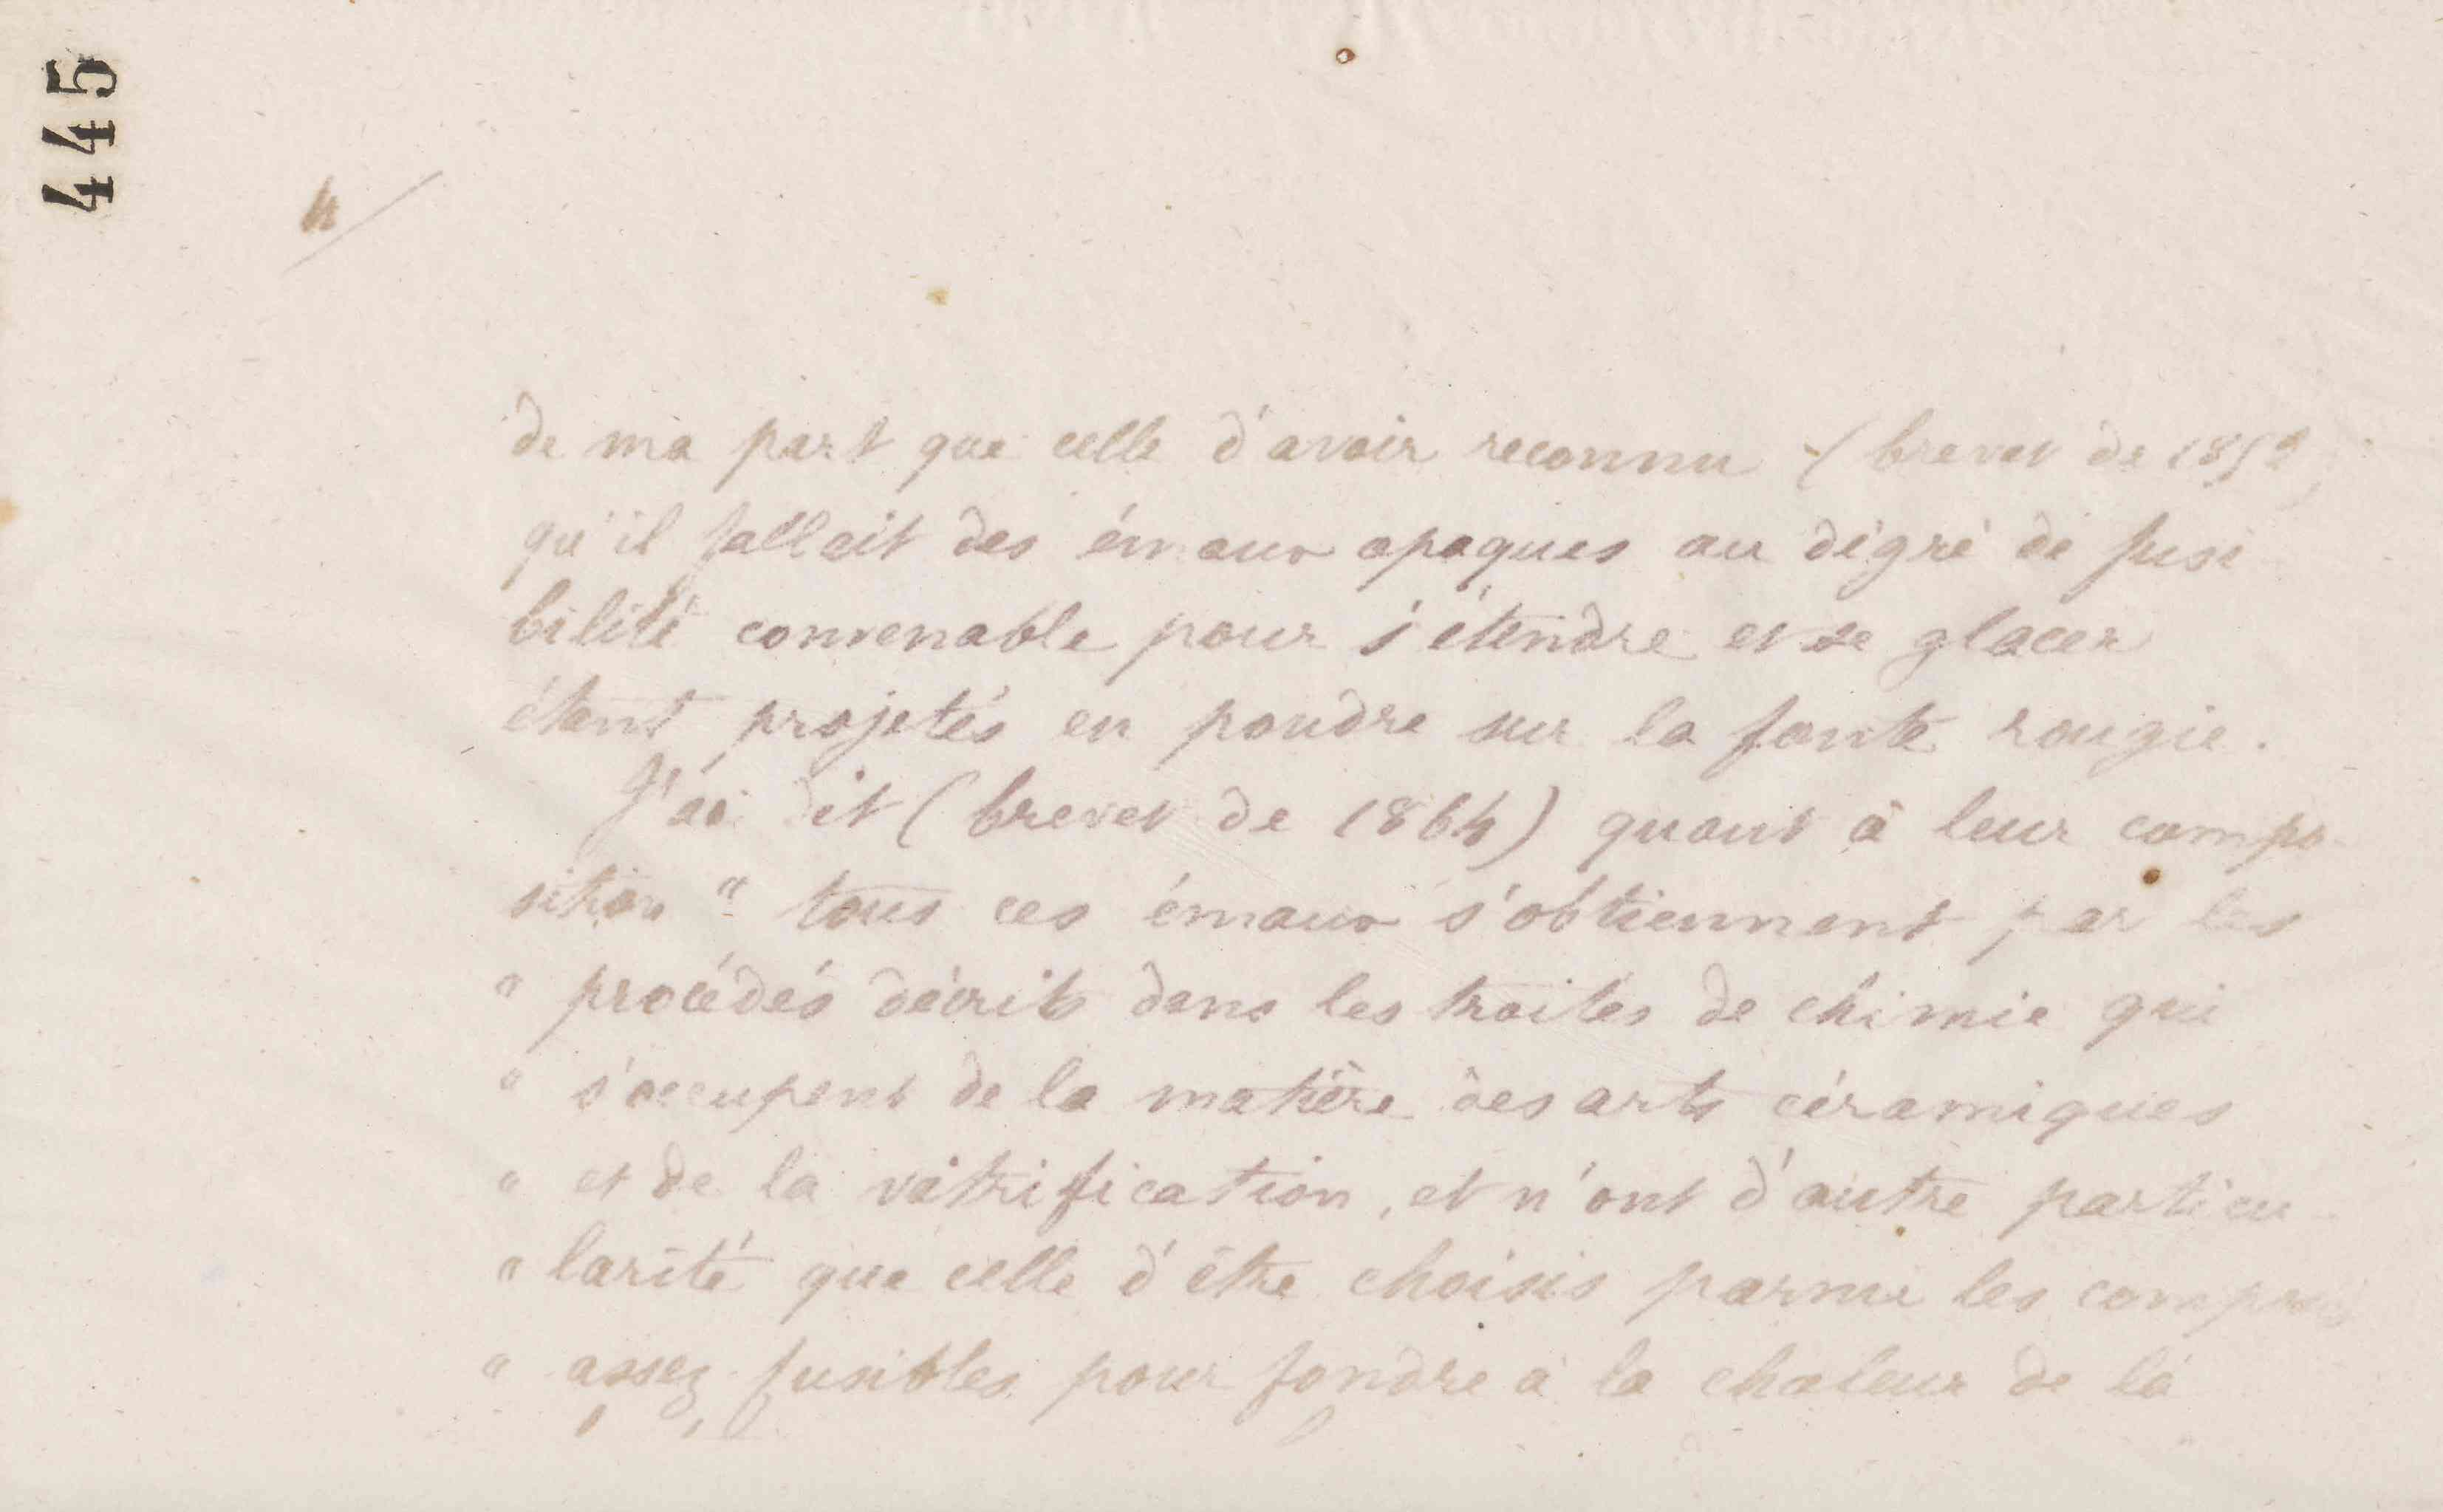 445
4
de ma part que celle d'avoir reconnu (brevet de 1852)
qu'il fallait des émaux opaques au dégré de fusi
bilité convenable pour s'étendre et se glacer
étant projetés en poudre sur la fonte rougie.
J'ai dit (brevet de 1864) quant à leur compo
sition " tous ces émaux s'obtiennent par les
" procédés décrits dans les traités de chimie qui
" s'occupent de la matière des arts céramiques
" et de la vitrification, et n'ont d'autre particu
" larité que celle d'être choisis parmi les composés
" assez fusibles pour fondre à la chaleur de la